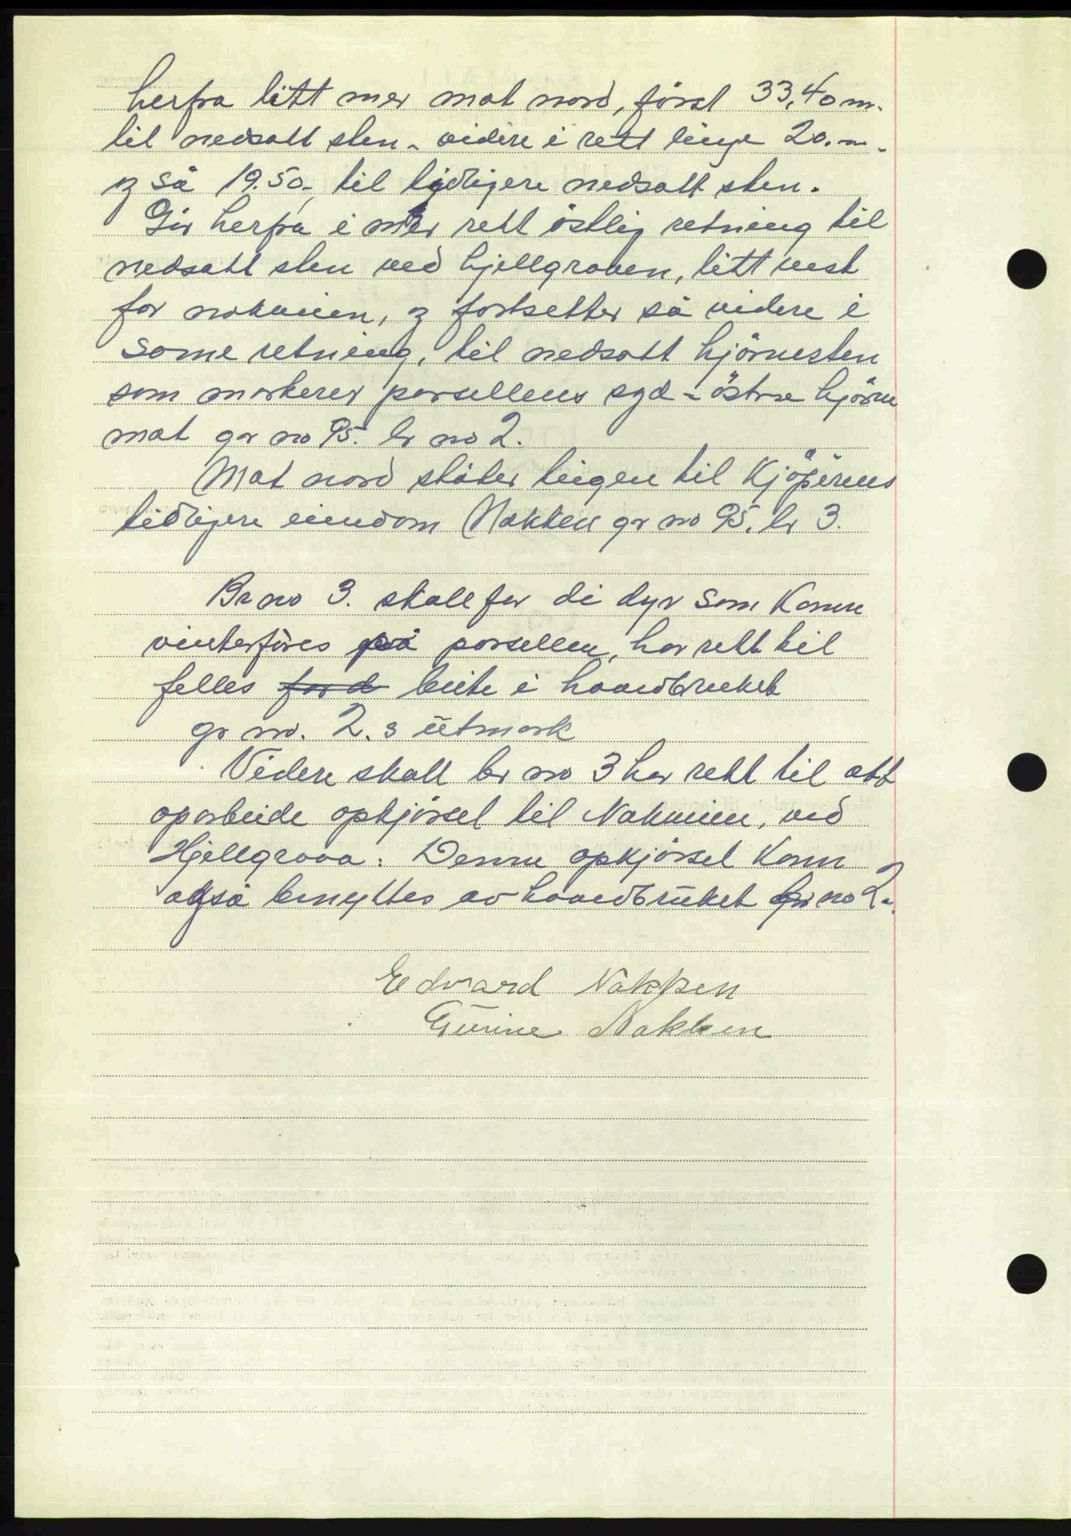 herfra litt mer mot nord, først 33,40 m.
til nedsatt sten - videre i rett linje 20. m -
og så 19.50, til tidligere nedsatt sten.
Går herfra i mer rett östlig retning til
nedsatt sten ved hjellgraven, litt vest
for nakkveien, og fortsetter så videre i
same retning, til nedsatt hjörnesten
som markerer parsellens syd-östre hjörne
mot gr no 95. br no 2.
Mot nord støter lingen til Kjöperens
tidligere eiendom Nakken gr no 95. br 3.
Br no 3. skall for de dyr som kann
vinterföres på parsellen, har rett til
felles for d beite i hovedbruket
gr no. 2.s ütmark
Videre skall br no 3 har rett til att
oparbeide opkjörsel til Nakkveien, ved
Hjellgrava. Denne opkjörsel kann
også benyttes av hovedbrüket br no 2.
Edvard Nakken
Gurine Nakken